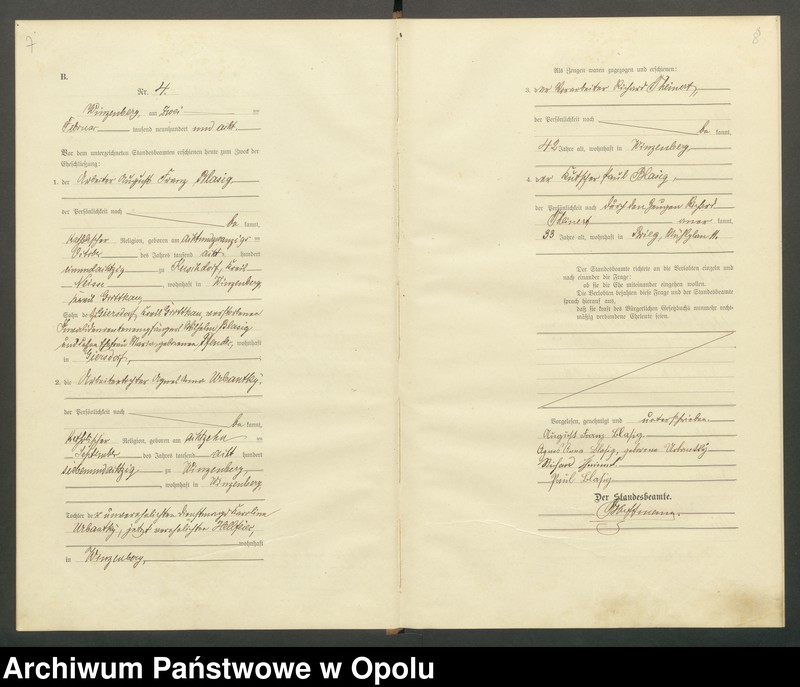 7
B.
Nr. 4.
Winzenberg, am zwei
Februar tausend neunhundert und acht.
Vor dem unterzeichneten Standesbeamten erschienen heute zum Zweck der
Eheschließung:
1. der Arbeiter August Franz Blasig
der Persönlichkeit nach
be kannt,
katholischer Religion, geboren am
Oktober des Jahres tausend acht hundert
zu Kreis
Neisse wohnhaft in Winzenberg,
Kreis Grottkau
Sohn des Giersdorf, Kreis Grottkau, verstorbenen
Invalidenrentenempfängers Wilhelm Blasig
und dessen Ehefrau Maria, geborenen wohnhaft
in Giersdorf,
2. die Arbeitertochter Agnes Anna Urbantky,
der Persönlichkeit nach
be kannt,
katholischer Religion, geboren am achtzehn
September des Jahres tausend acht hundert
siebenundachtzig zu Winzenberg,
wohnhaft in Winzenberg,
Tochter der unverehelichten Dienstmagd Karoline
Urbantky, jetzt verehelichten
wohnhaft
in Winzenberg,
8
Als Zeugen waren zugezogen und erschienen:
3. der Vorarbeiter Richard Theinert,
der Persönlichkeit nach
be kannt,
42 Jahre alt, wohnhaft in Winzenberg,
4. der Kutscher Paul Blasig,
der Persönlichkeit nach durch den Zeugen Richard
Theinert aner kannt,
33 Jahre alt, wohnhaft in Brieg, Mühlplan
Der Standesbeamte richtete an die Verlobten einzeln und
nach einander die Frage:
ob sie die Ehe miteinander eingehen wollen.
Die Verlobten bejahten diese Frage und der Standesbeamte
sprach hierauf aus,
daß sie kraft des Bürgerlichen Gesetzbuchs nunmehr recht-
mäßig verbundene Eheleute seien.
Vorgelesen, genehmigt und unterschrieben.
August Franz Blasig
Agnes Anna Blasig, geborene Urbantky
Richard
Paul Blasig
Der Standesbeamte.
Archiwum Państwowe w Opolu